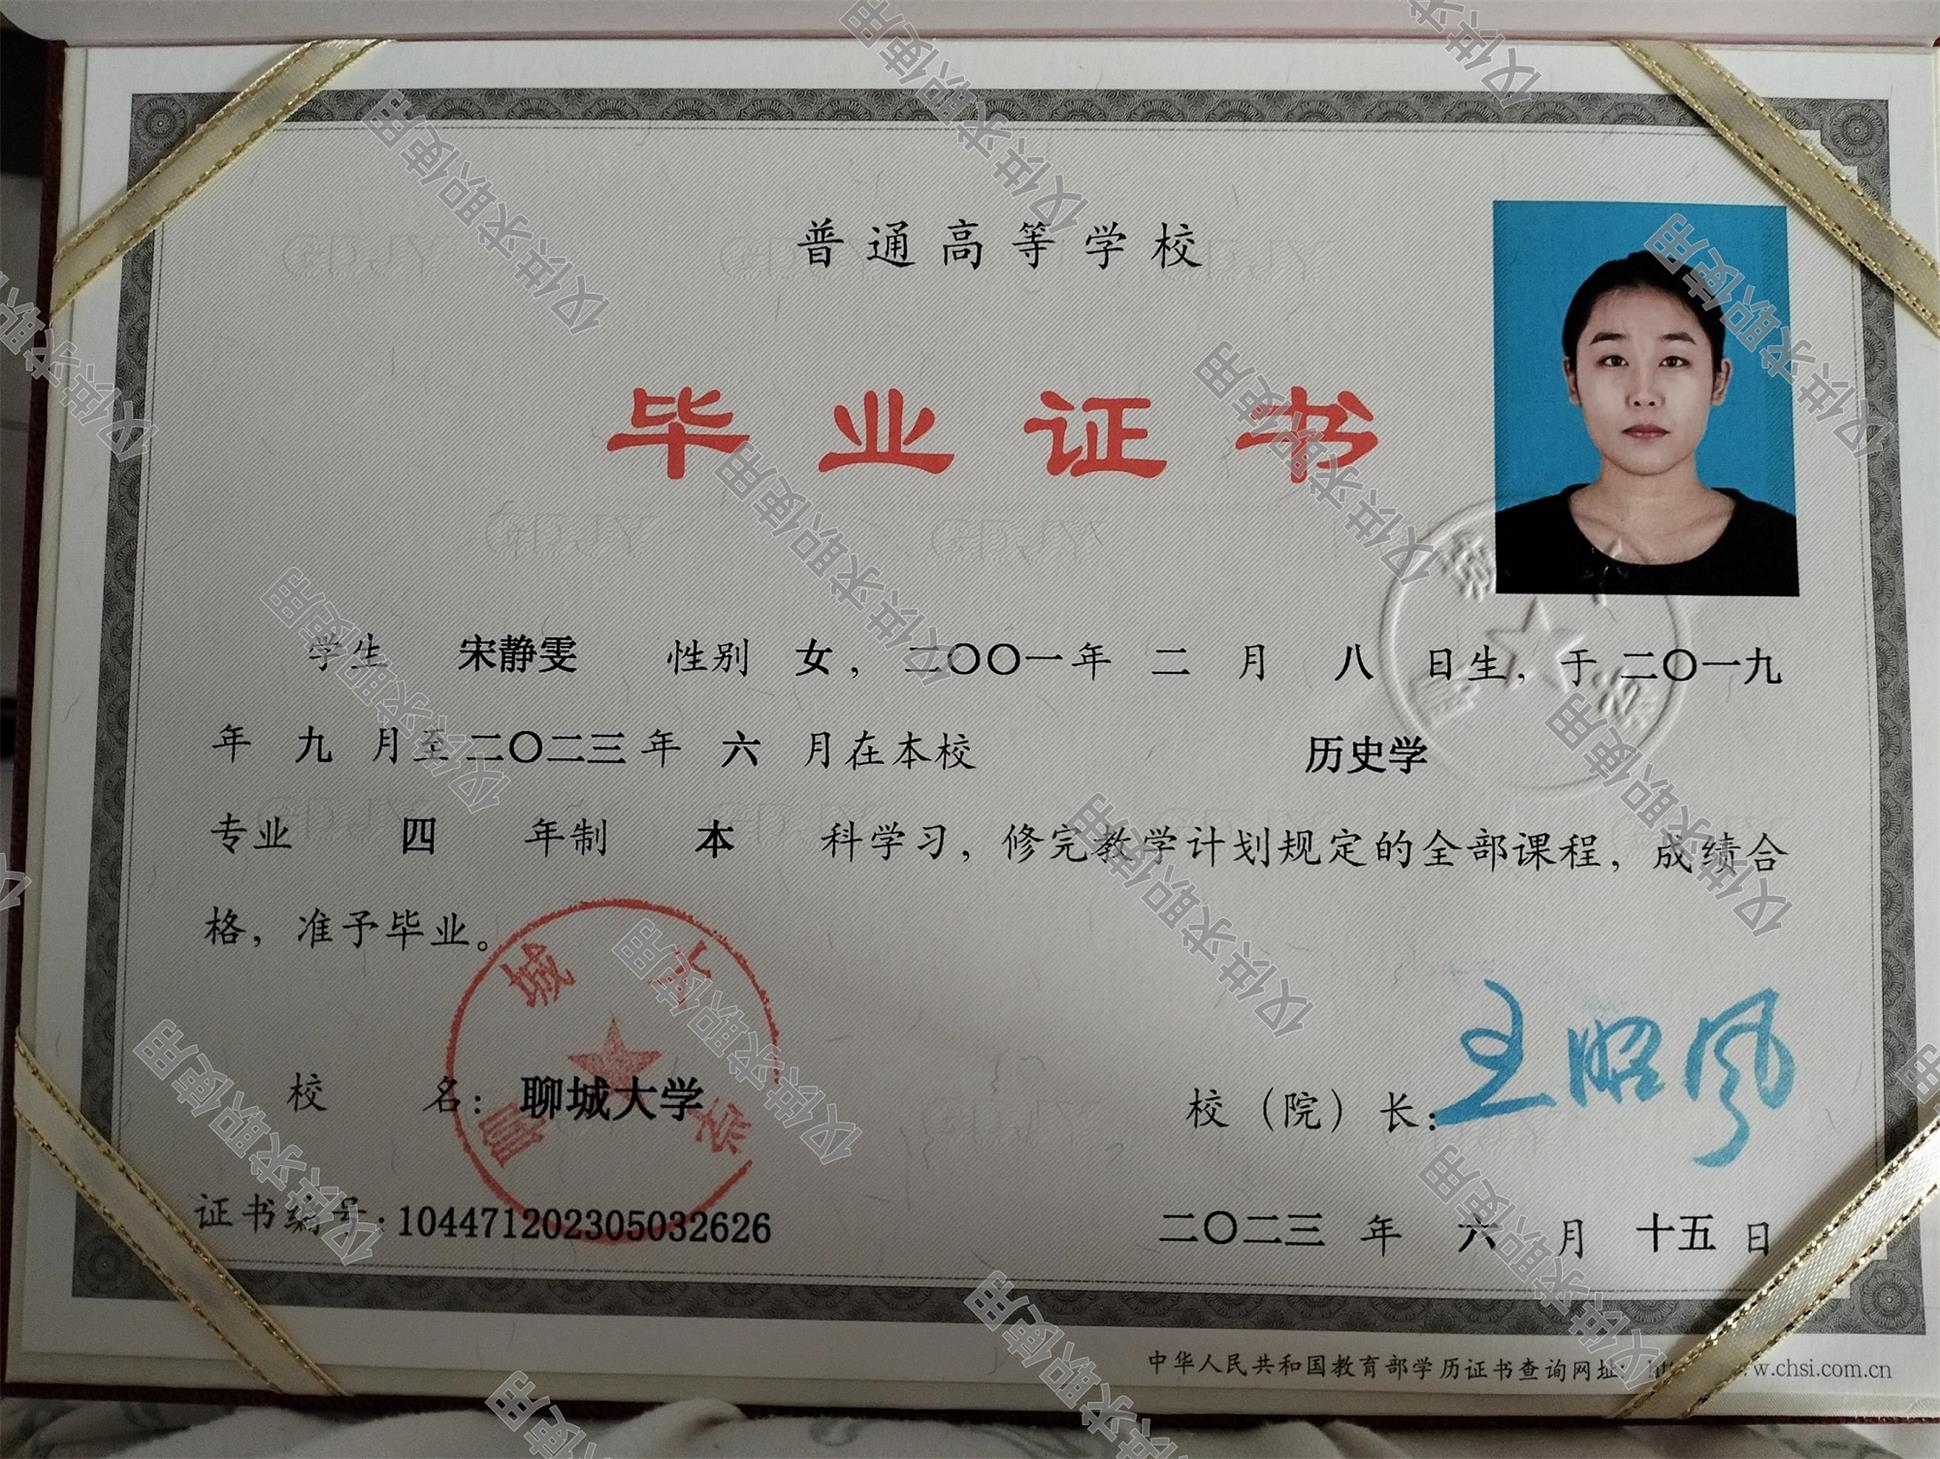 普通高等学校
毕业证书
学生 宋静雯 性别 女，二〇〇一年 二 月 八 日生，于二〇一九
年 九 月至二〇二三年 六 月在本校 历史学
专业 四 年制 本 科学习，修完教学计划规定的全部课程，成绩合
格，准予毕业。
校 名：聊城大学
校（院）长：王昭风
证书编号：104471202305032626
二〇二三 年 六 月 十五 日
中华人民共和国教育部学历证书查询网址：
w.chsi.com.cn
仅供求职使用
GDJY